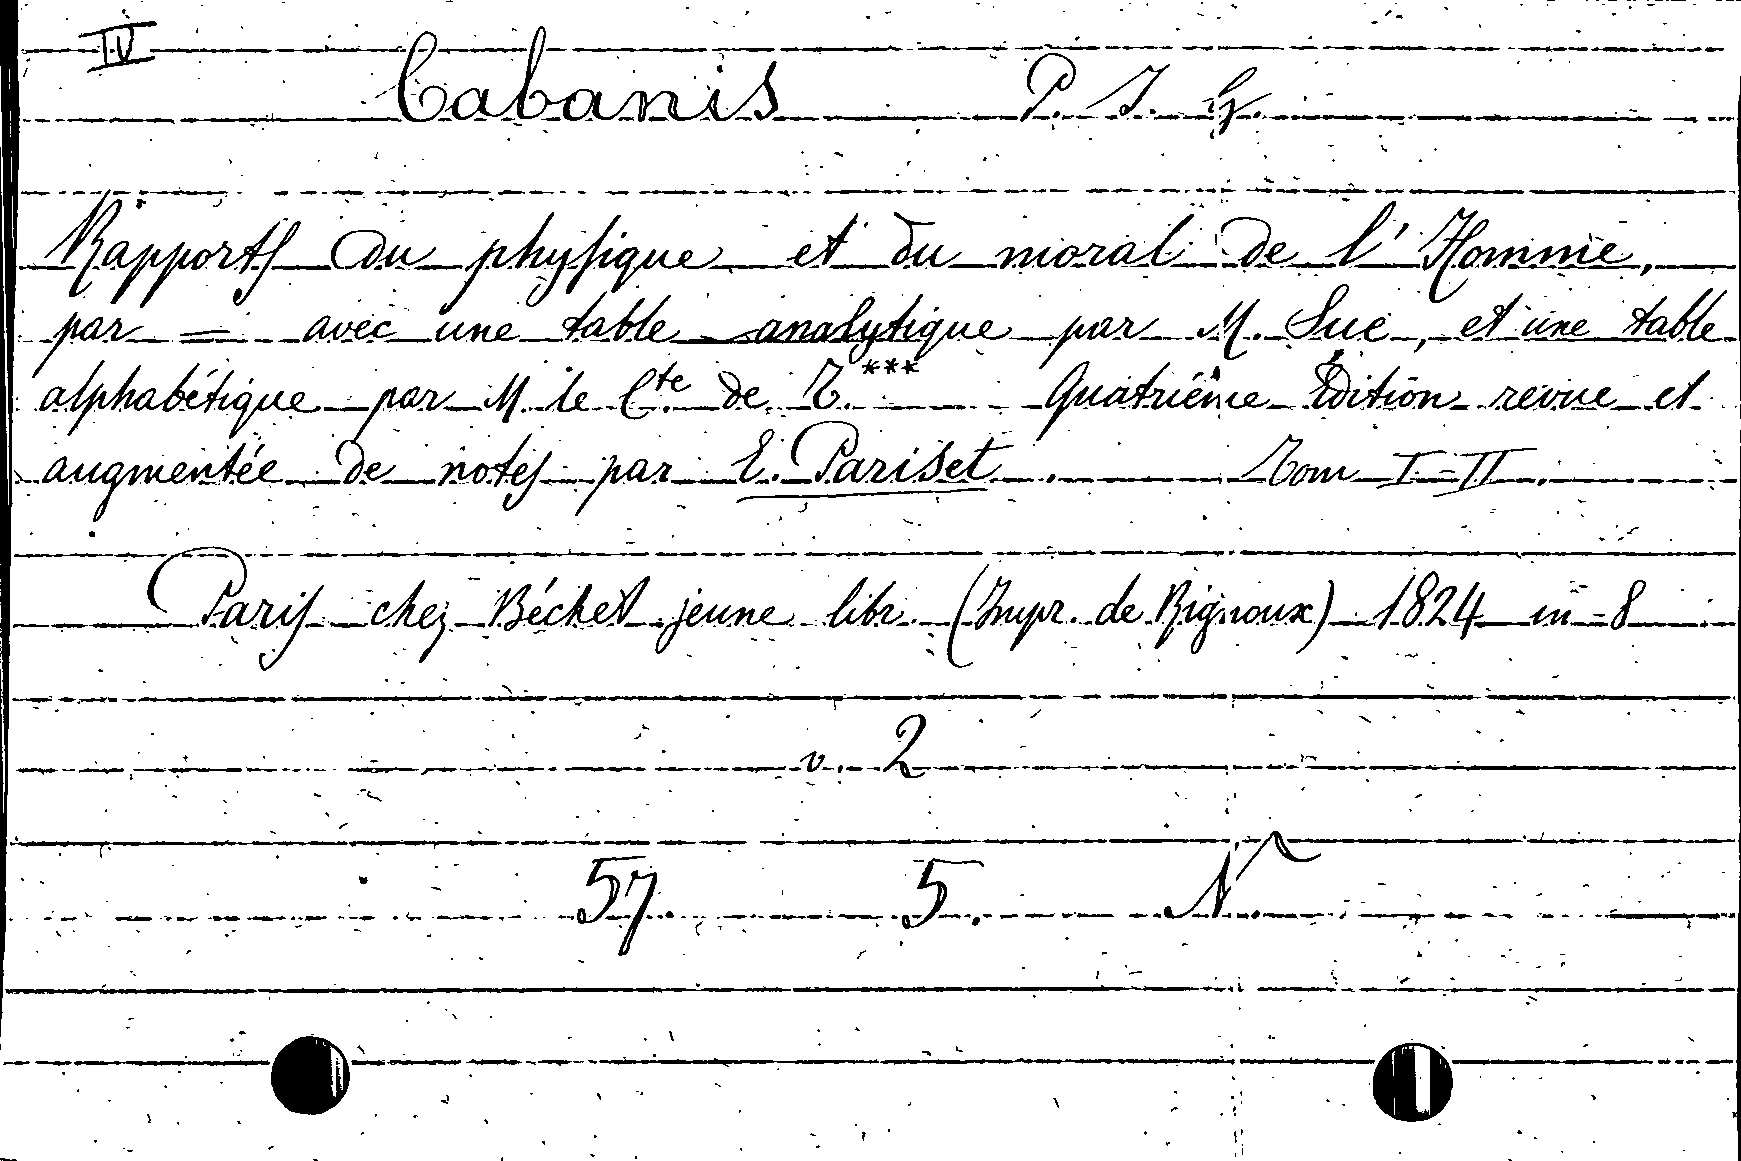 IV
Cabanis P. J. G.
Rapports du physique et du moral de l'Homme,
par = avec une table analytique par M. Sue, et une table
alphabétique par M. le Cte de T.*** Quatrième Édition revue et
augmentée de notes par E. Pariset. Tom I-II.
Paris chez Béchet jeune libr. (Impr. de Rignoux) 1824 in-8
v. 2
57. 5. N.